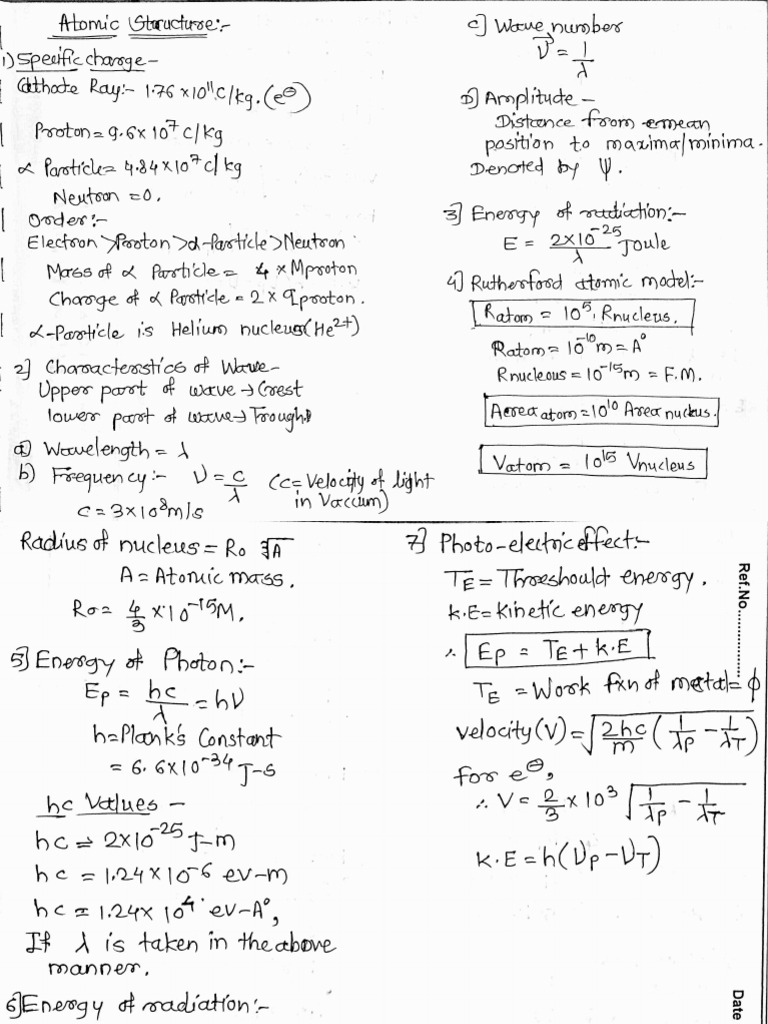 Atomic Structure:-
1) Specific charge -
Cathode Ray:- 1.76 × 10¹¹ C/kg. (e⊖)
Proton = 9.6 × 10⁷ C/kg
α Particle = 4.84 × 10⁷ C/kg
Neutron = 0.
Order:-
Electron > Proton > α-Particle > Neutron
Mass of α Particle = 4 × Mproton
Charge of α Particle = 2 × qproton.
α-Particle is Helium nucleus (He²⁺)
2] Characterstics of Wave -
Upper part of wave → Crest
lower part of wave → Trough
a) Wavelength = λ
b) Frequency:- ν = c/λ (c = Velocity of light in Vaccum)
c = 3×10⁸ m/s
c] Wave number
ν̄ = 1/λ
D) Amplitude -
Distance from mean
position to maxima/minima.
Denoted by Ψ.
3] Energy of radiation:-
E = 2×10⁻²⁵/λ Joule
4] Rutherford atomic model:-
Ratom = 10⁵. Rnucleus.
Ratom = 10⁻¹⁰ m = A°
Rnucleous = 10⁻¹⁵ m = F.M.
Aerea atom = 10¹⁰ Area nucleus.
Vatom = 10¹⁵ Vnucleus
Radius of nucleus = R₀ ∛A
A = Atomic mass.
R₀ = 4/3 × 10⁻¹⁵ M.
5] Energy of Photon:-
Ep = hc/λ = hν
h = Plank's Constant
= 6.6×10⁻³⁴ J-s
hc Values -
hc = 2×10⁻²⁵ J-m
hc = 1.24 × 10⁻⁶ ev-m
hc = 1.24× 10⁴ ev-A°,
If λ is taken in the above
manner.
6] Energy of radiation:-
7] Photo-electric effect:-
TE = Threshould energy.
k.E = kinetic energy
∴ Ep = TE + k.E
TE = Work fxn of metal = ϕ
velocity (V) = √(2hc/m (1/λp − 1/λT))
for e⊖,
∴ V = 2/3 × 10³ √(1/λp − 1/λT)
k.E = h(νp − νT)
Ref.No.
Date